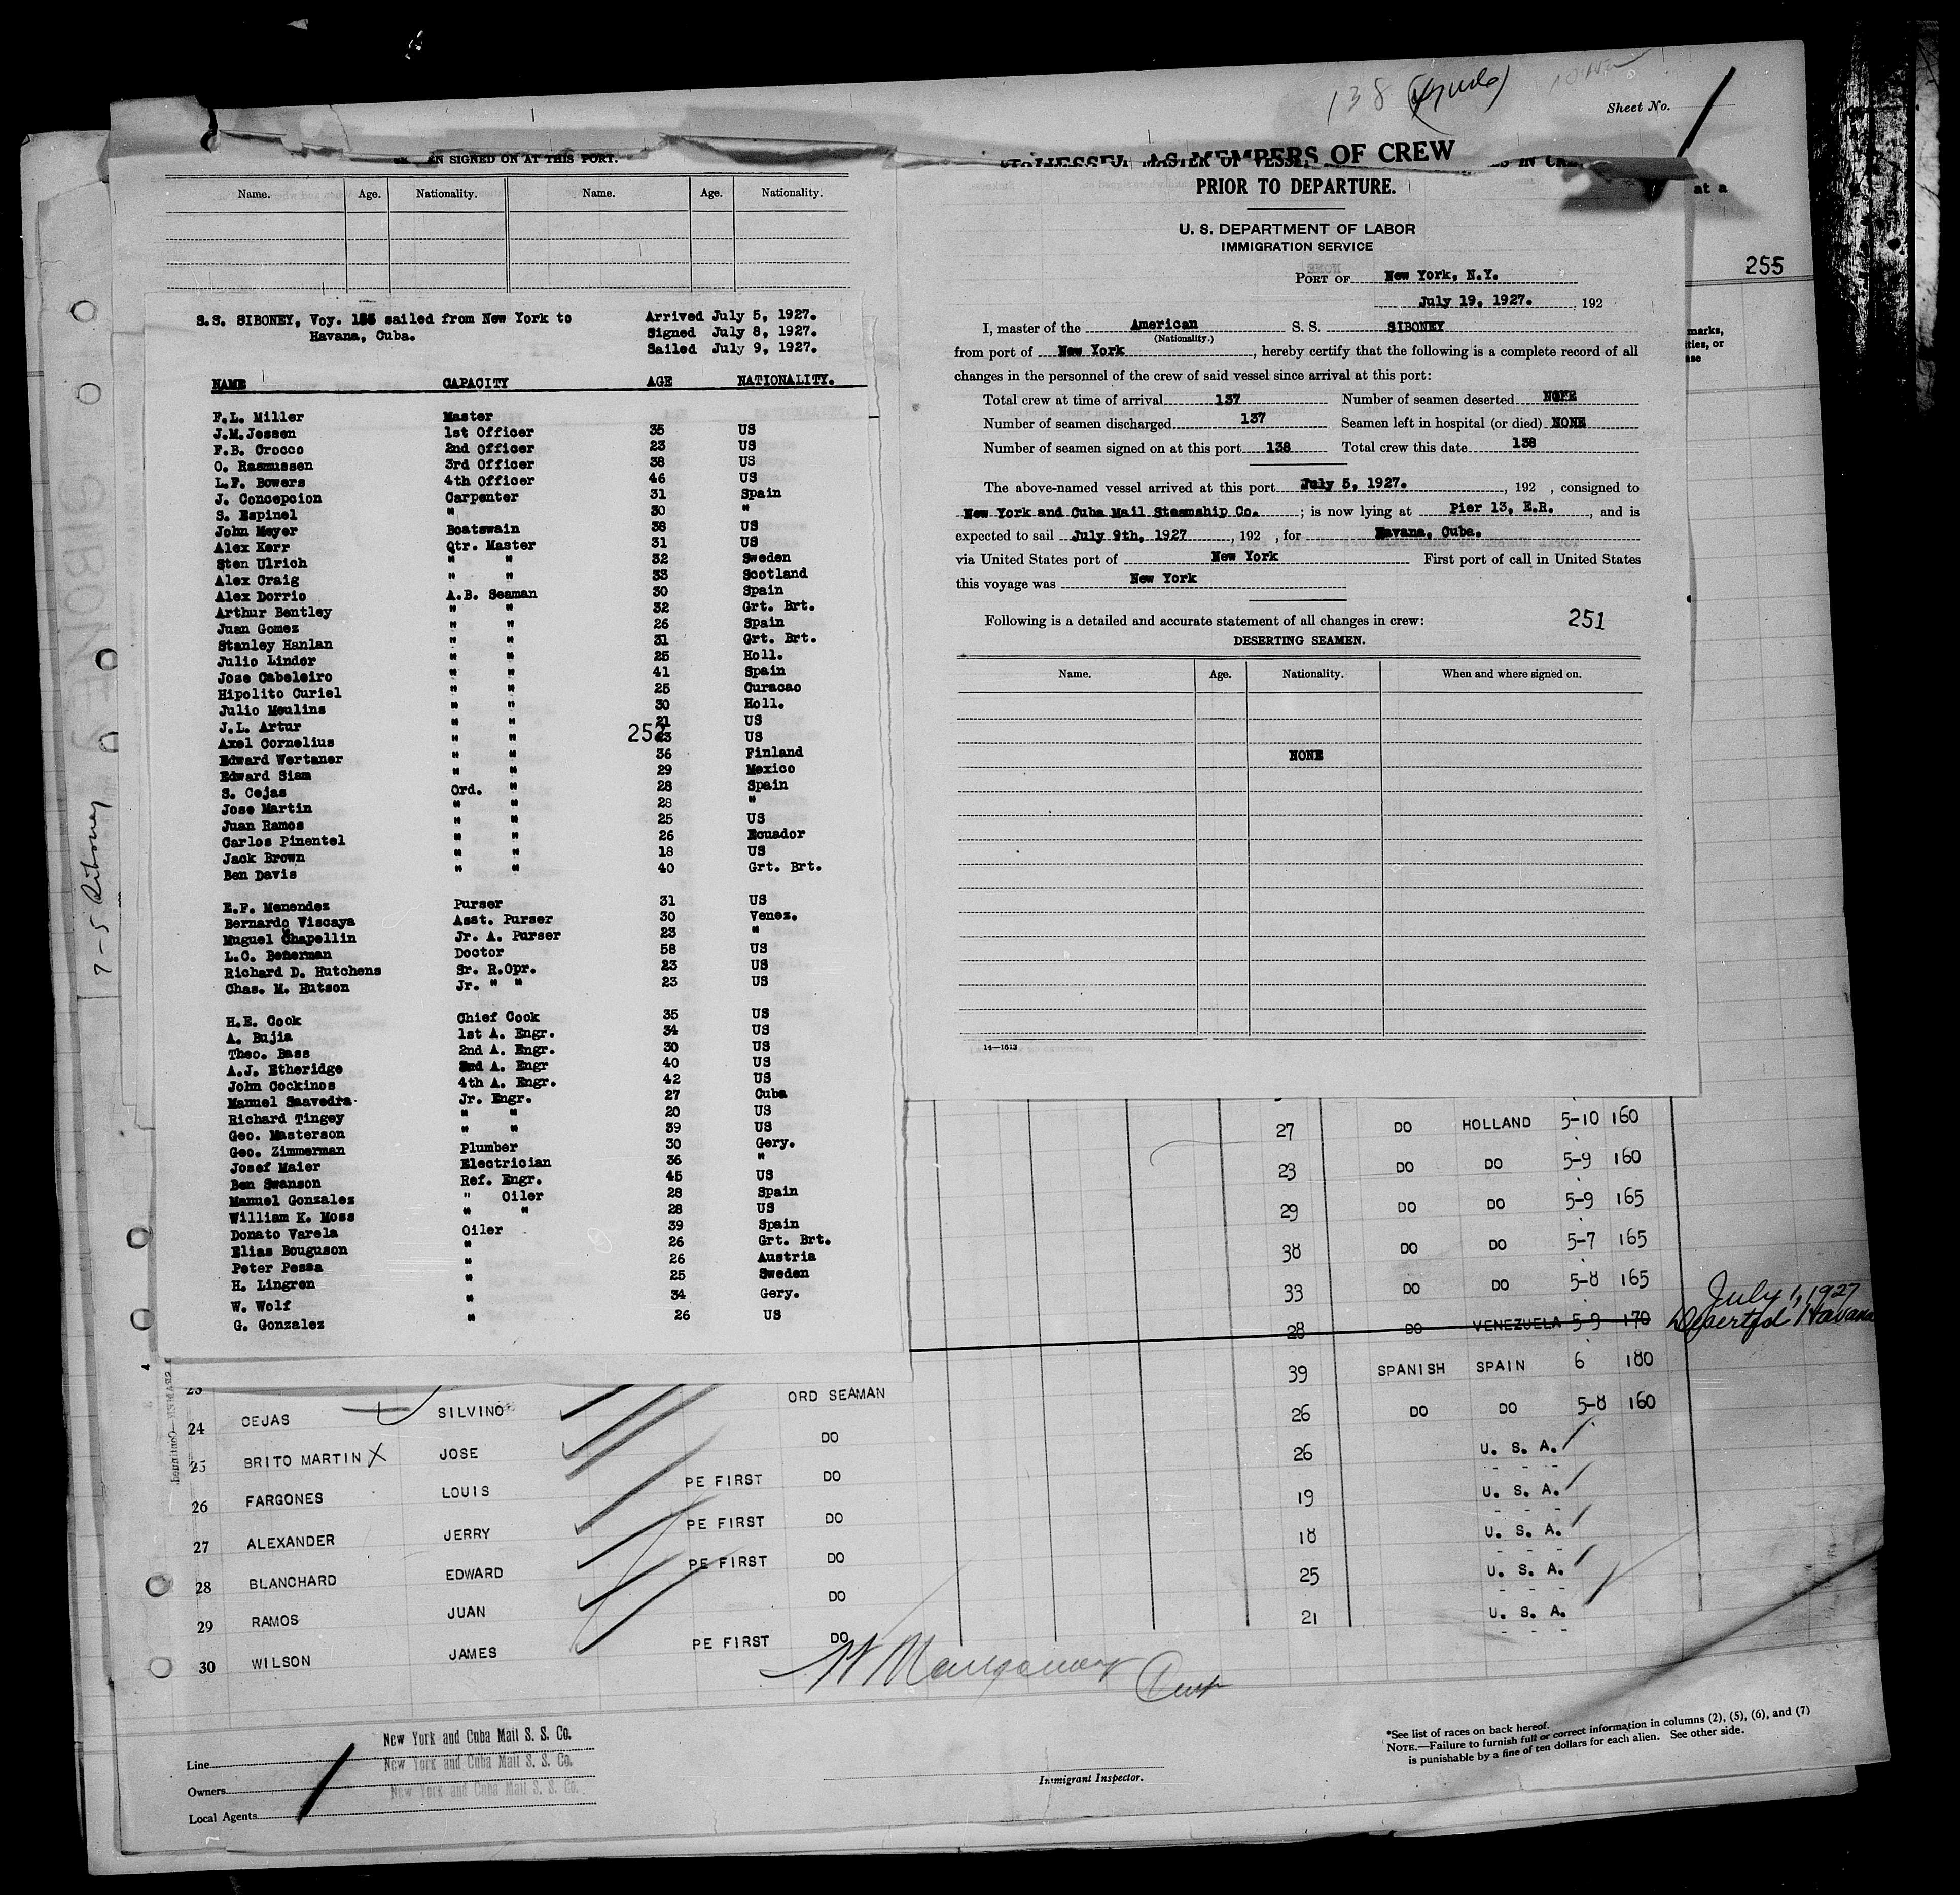 138
Sheet No.
EN SIGNED ON AT THIS PORT.
Name. Age. Nationality. Name. Age. Nationality.
S.S. SIBONEY, Voy. sailed from New York to
Havana, Cuba.
Arrived July 5, 1927.
Signed July 8, 1927.
Sailed July 9, 1927.
NAME CAPACITY AGE NATIONALITY.
F.L. Miller Master
J.M. Jessen 1st Officer 35 US
F.B. Crocco 2nd Officer 23 US
O. Rasmussen 3rd Officer 38 US
L.F. Bowers 4th Officer 46 US
J. Concepcion Carpenter 31 Spain
S. Espinel " 30 "
John Meyer Boatswain 38 US
Alex Kerr Qtr. Master 31 US
Sten Ulrich " " 32 Sweden
Alex Craig " " 33 Scotland
Alex Dorrio A.B. Seaman 30 Spain
Arthur Bentley " " 32 Grt. Brt.
Juan Gomez " " 26 Spain
Stanley Hanlan " " 31 Grt. Brt.
Julio Linder " " 25 Holl.
Jose Cabeleiro " " 41 Spain
Hipolito Curiel " " 25 Curacao
Julio Meulins " " 30 Holl.
J.L. Artur " " 21 US
Axel Cornelius " " US
252
Edward Wertaner " " 36 Finland
Edward Siam " " 29 Mexico
S. Cejas Ord. " 28 Spain
Jose Martin " " 28 "
Juan Ramos " " 25 US
Carlos Pinentel " " 26 Ecuador
Jack Brown " " 18 US
Ben Davis " " 40 Grt. Brt.
E.F. Menendez Purser 31 US
Bernardo Viscaya Asst. Purser 30 Venez.
Muguel Chapellin Jr. A. Purser 23 "
L.C. Benerman Doctor 58 US
Richard D. Hutchens Sr. R.Opr. 23 US
Chas. M. Hutson Jr. " " 23 US
H.E. Cook Chief Cook 35 US
A. Bujia 1st A. Engr. 34 US
Theo. Bass 2nd A. Engr. 30 US
A.J. Etheridge A. Engr 40 US
John Cockinos 4th A. Engr. 42 US
Manuel Saavedra Jr. Engr. 27 Cuba
Richard Tingey " " 20 US
Geo. Masterson " " 39 US
Geo. Zimmerman Plumber 30 Gery.
Josef Maier Electrician 36 "
Ben Swanson Ref. Engr. 45 US
Manuel Gonzalez " Oiler 28 Spain
William K. Moss " " 28 US
Donato Varela Oiler 39 Spain
Elias Bouguson " 26 Grt. Brt.
Peter Pessa " 26 Austria
H. Lingren " 25 Sweden
W. Wolf " 34 Gery.
G. Gonzalez " 26 US
AS MEMBERS OF CREW
PRIOR TO DEPARTURE.
U. S. DEPARTMENT OF LABOR
IMMIGRATION SERVICE
PORT OF New York, N.Y.
July 19, 1927. 192
I, master of the American S. S. SIBONEY
(Nationality.)
from port of New York, hereby certify that the following is a complete record of all
changes in the personnel of the crew of said vessel since arrival at this port:
Total crew at time of arrival 137 Number of seamen deserted NONE
Number of seamen discharged 137 Seamen left in hospital (or died) NONE
Number of seamen signed on at this port 138 Total crew this date 138
The above-named vessel arrived at this port July 5, 1927. , 192 , consigned to
New York and Cuba Mail Steamship Co. ; is now lying at Pier 13, E.R. , and is
expected to sail July 9th, 1927 , 192 , for Havana, Cuba.
via United States port of New York First port of call in United States
this voyage was New York
Following is a detailed and accurate statement of all changes in crew: 251
DESERTING SEAMEN.
Name. Age. Nationality. When and where signed on.
NONE
14—1513
at a
255
marks,
ties, or
ase
7-5 Siboney
27 DO HOLLAND 5-10 160
23 DO DO 5-9 160
29 DO DO 5-9 165
38 DO DO 5-7 165
33 DO DO 5-8 165
28 DO VENEZUELA 5-9 170 July 1, 1927 Deserted Havana
39 SPANISH SPAIN 6 180
24 CEJAS SILVINO ORD SEAMAN 26 DO DO 5-8 160
25 BRITO MARTIN X JOSE DO 26 U. S. A.
26 FARGONES LOUIS PE FIRST DO 19 U. S. A.
27 ALEXANDER JERRY PE FIRST DO 18 U. S. A.
28 BLANCHARD EDWARD PE FIRST DO 25 U. S. A.
29 RAMOS JUAN DO 21 U. S. A.
30 WILSON JAMES PE FIRST DO
Line New York and Cuba Mail S. S. Co.
Owners New York and Cuba Mail S. S. Co.
Local Agents New York and Cuba Mail S. S. Co.
Immigrant Inspector.
*See list of races on back hereof.
NOTE.—Failure to furnish full or correct information in columns (2), (5), (6), and (7)
is punishable by a fine of ten dollars for each alien. See other side.